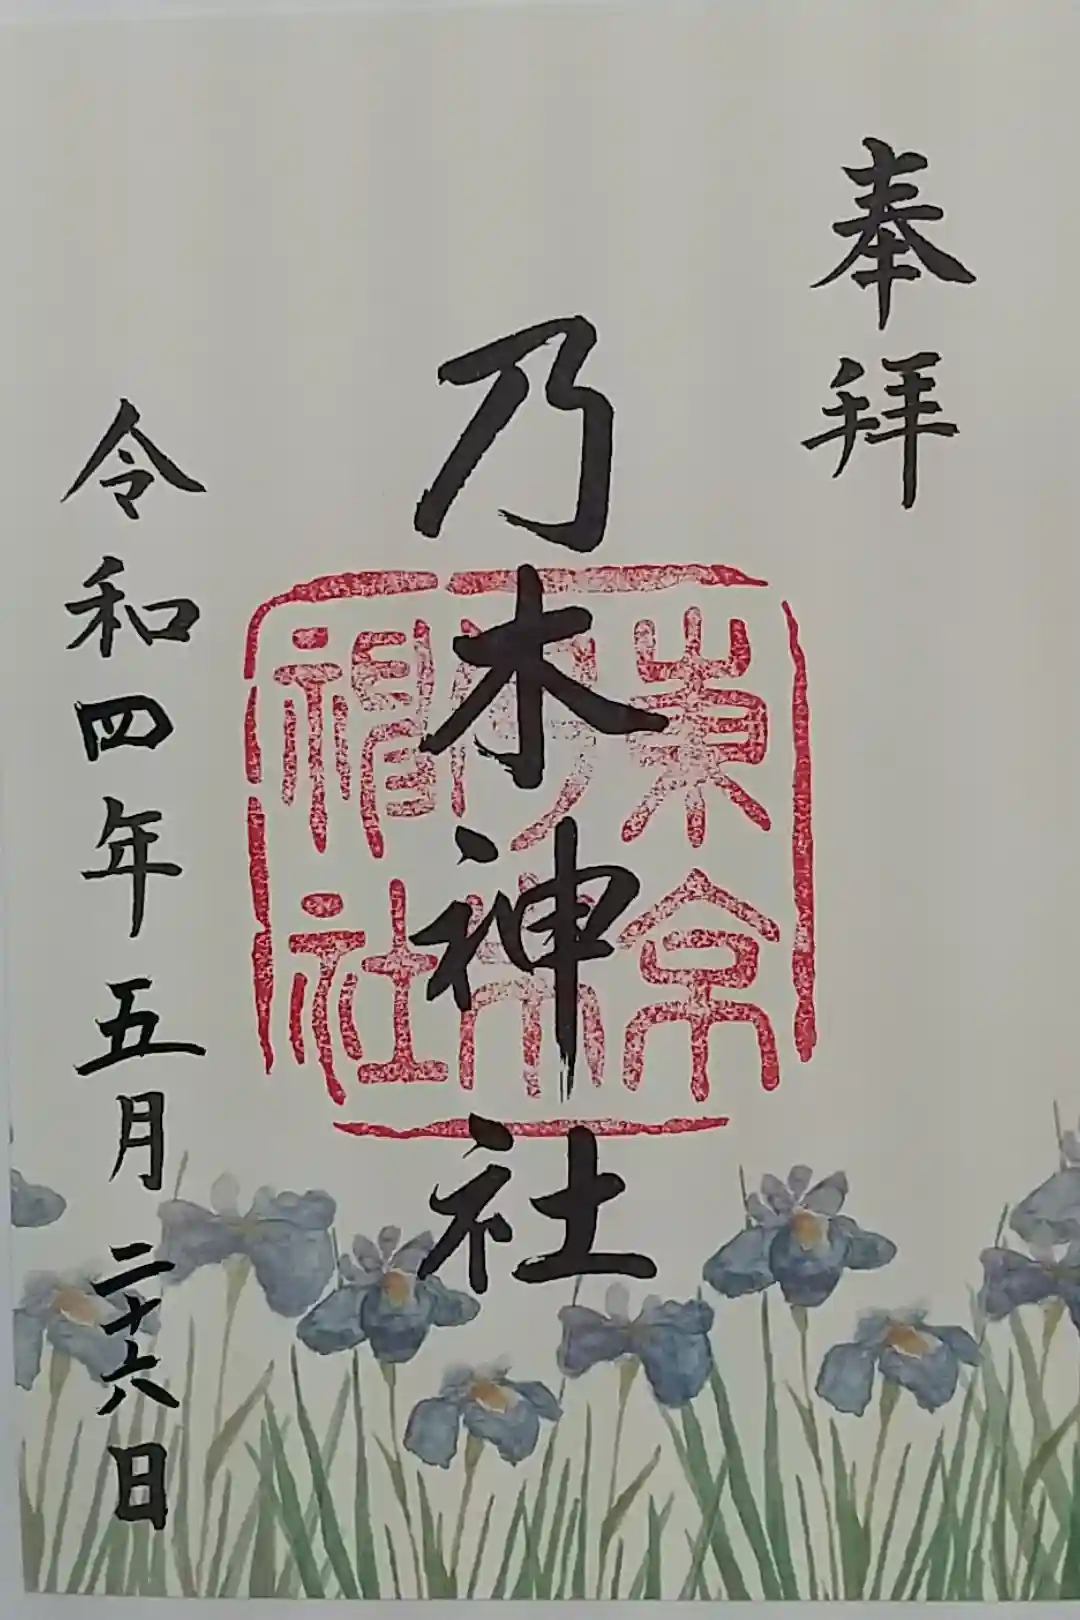 奉拝
乃木神社
東京
乃木
神社
令和四年五月二十六日